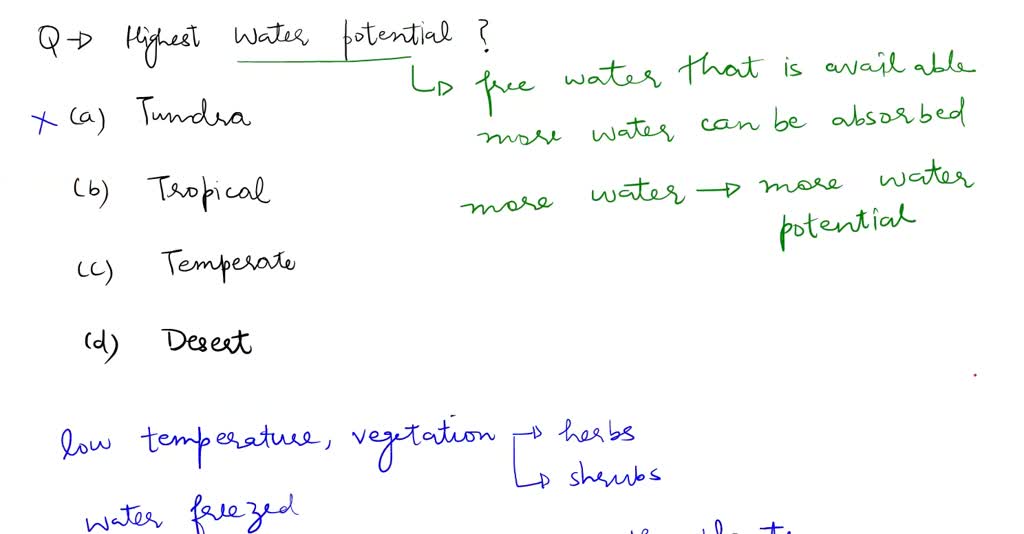 Q → Highest water potential ?
↳ free water that is available
more water can be absorbed
more water → more water potential
x (a) Tundra
(b) Tropical
(c) Temperate
(d) Desert
low temperature, vegetation → herbs
↳ shrubs
water freezed